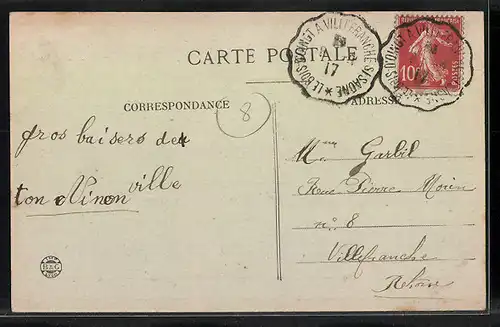 CARTE POSTALE
LE BOIS-D'OINGT A VILLEFRANCHE S/SAONE
17
10
POSTES
CORRESPONDANCE
8
ADRESSE
gros baisers de
ton Ninon ville
Garbil
Rue Pierre Morin
n° 8
Villefranche
Rhône
B & G